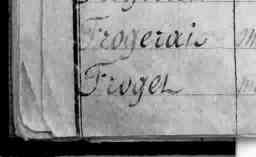 Frogerais
Froget